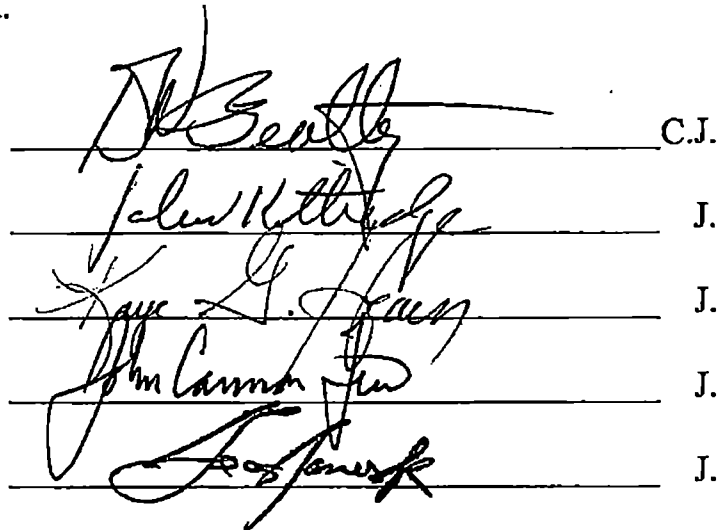 Beatty C.J.
John Kittredge J.
Kaye G. Hearn J.
John Cannon Few J.
James Jr J.